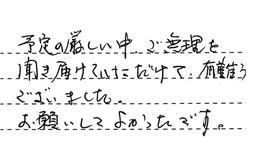 予定の厳しい中、ご無理を
聞き届けていただけて、有難う
ございました。
お願いしてよかったです。